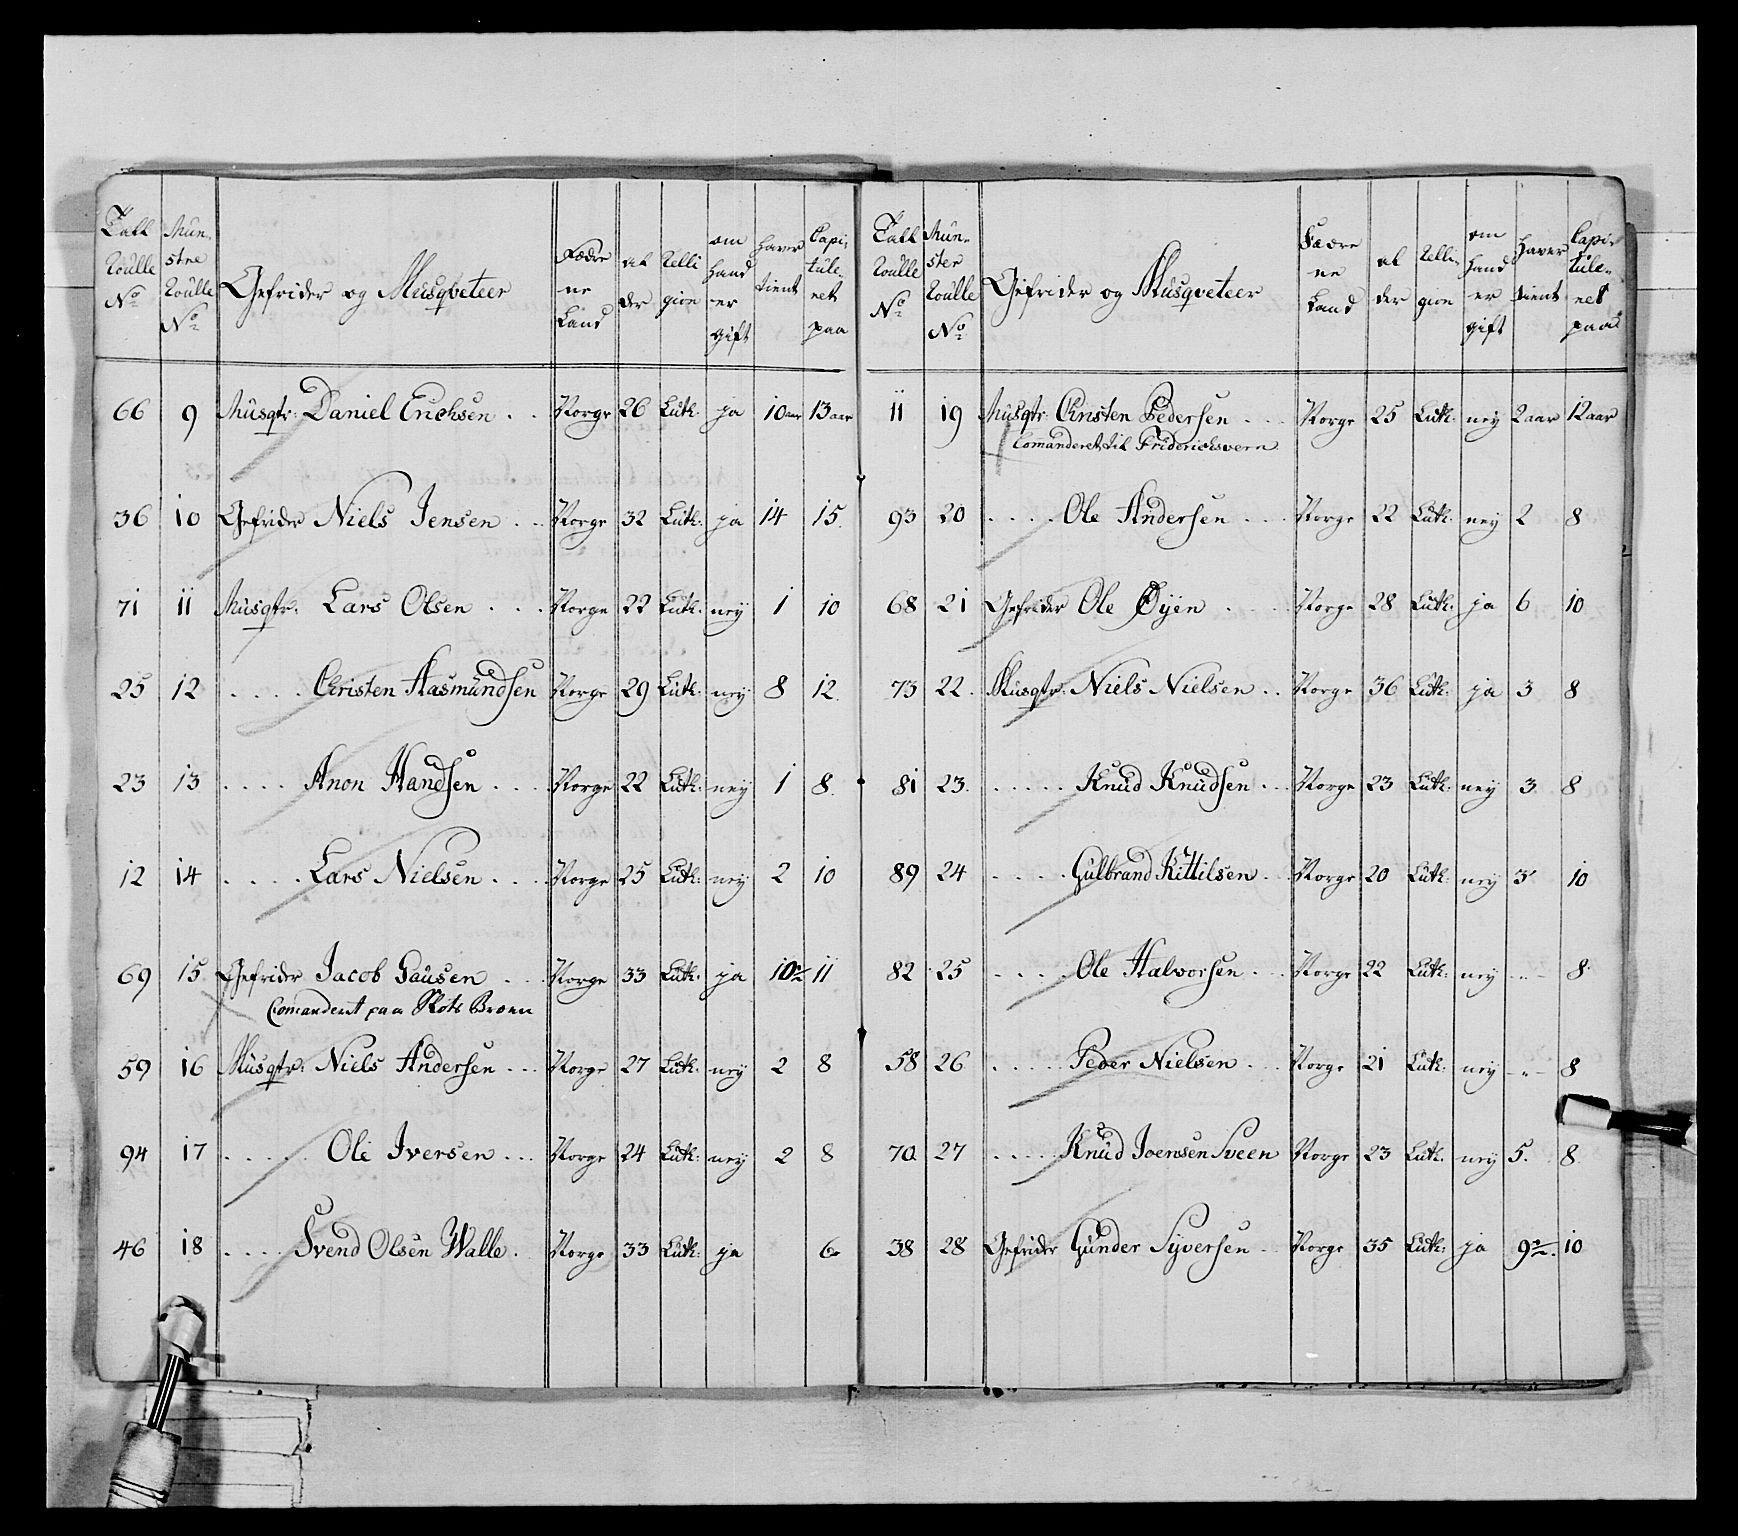 Tall Roulle No
Mün- stre Roulle No
Gefrider og Musqveteer
Fædre ne Land
al der
Relli gion
om hand er gift
haver tient
Capi- tule- ret paa
66 9 Müsqtr: Daniel Erichsen . . Norge 26 Luth: ja 10 aar 13 aar
36 10 Gefrider Niels Jensen . . Norge 32 Luth: ja 14 15.
71 11 Müsqtr: Lars Olsen . . . Norge 22 Luth: ney 1 10
25 12 . . . . Christen Aasmündsen Norge 29 Luth: ney 8 12.
23 13 . . . . Anon Handsen . . . Norge 22 Luth: ney 1 8.
12 14 . . . . Lars Nielsen . . . Norge 25 Luth: ney 2 10
69 15 Gefrider Jacob Paüsen . . . Norge 33 Luth: ja 10½ 11
Comanderet paa Skots Broen
59 16 Müsqtr: Niels Andersen . . . Norge 27 Luth: ney 2 8
94 17 . . . . Ole Iversen . . . Norge 24 Luth: ney 2 8
46 18 . . . . Svend Olsen Walle . Norge 33 Luth: ja 6
Tall Roulle No
Mün- ster Roulle No
Gefrider og Musqveteer
Fædre ne Land
al der
Relli- gion
om hand er gift
haver tient
Capi- tule- ret paa
11 19 Müsqtr: Christen Pedersen . . . Norge 25 Luth: ney 2 aar 12 aar
Comanderet til Friderichsvern
93 20 . . . . Ole Andersen . . . Norge 22 Luth: ney 2 8
68 21 Gefrider Ole Øyen . . . Norge 28 Luth: ja 6 10
73 22. Müsqtr: Niels Nielsen . . Norge 36 Luth: ja 3 8
81 23. . . . . . Knud Knudsen . . . Norge 23 Luth: ney 3 8
89 24 . . . . . Gulbrand Kittilsen . Norge 20 Luth: ney 3 10
82 25 . . . . Ole Halvorsen . . Norge 22 Luth: ney - „ - 8
58 26 . . . . . Peder Nielsen . . . Norge 21 Luth: ney - „ - 8
70. 27 . . . . . Knud Joensen Sveen Norge 23 Luth: ney 5. 8
38 28 Gefrider Günder Syversen . . Norge 35 Luth: ja 9½. 10